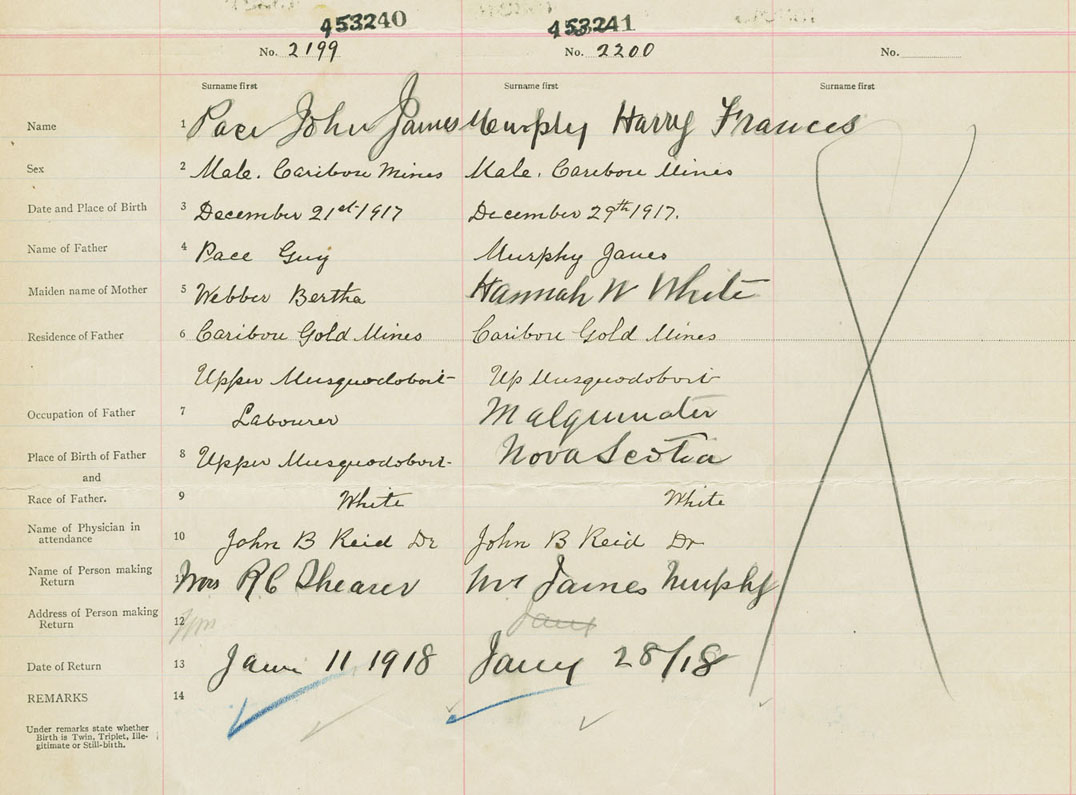 453240 453241
No. 2199 No. 2200 No.
Surname first Surname first Surname first
Name 1 Pace John James Murphy Harry Frances
Sex 2 Male. Caribou Mines Male. Caribou Mines
Date and Place of Birth 3 December 21st 1917 December 29th 1917.
Name of Father 4 Pace Guy Murphy James
Maiden name of Mother 5 Webber Bertha Hannah W White
Residence of Father 6 Caribou Gold Mines Caribou Gold Mines
Upper Musquodoboit Up Musquodoboit
Occupation of Father 7 Labourer
Place of Birth of Father 8 Upper Musquodoboit Nova Scotia
and
Race of Father. 9 White White
Name of Physician in
attendance 10 John B Reid Dr John B Reid Dr
Name of Person making
Return 11 Mrs R C Shearer Mr James Murphy
Address of Person making
Return 12
Date of Return 13 11 1918 Jany 28/18
REMARKS 14
Under remarks state whether
Birth is Twin, Triplet, Ille-
gitimate or Still-birth.